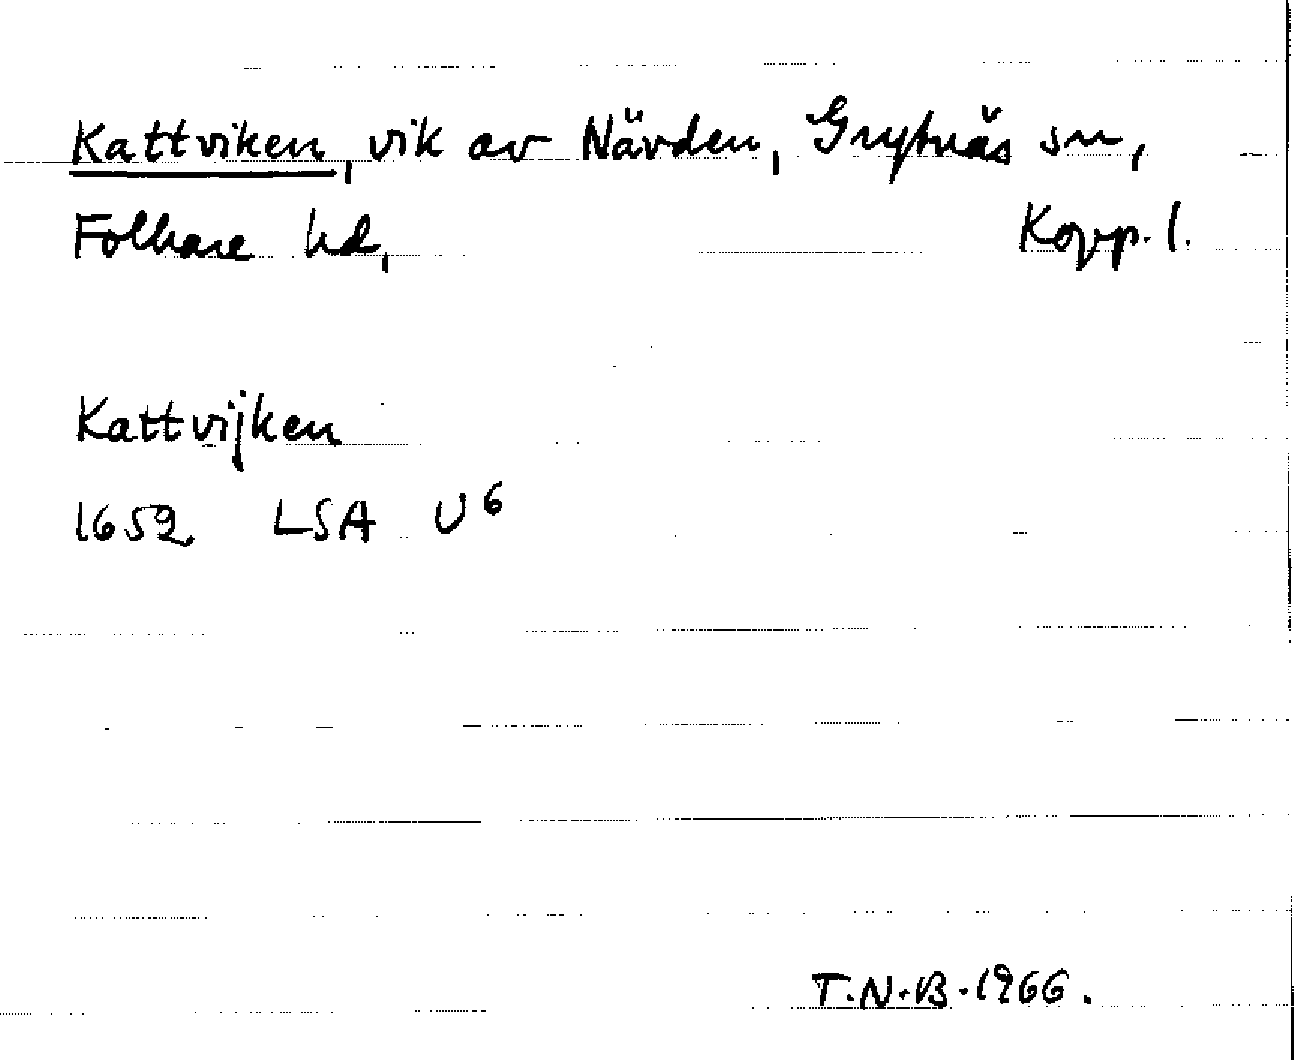 Kattviken, vik av Nävden, Grytnäs sn,
Folkare hd, Kopp. l.
Kattvijken
1652 LSA U⁶
T.N.B. 1966.